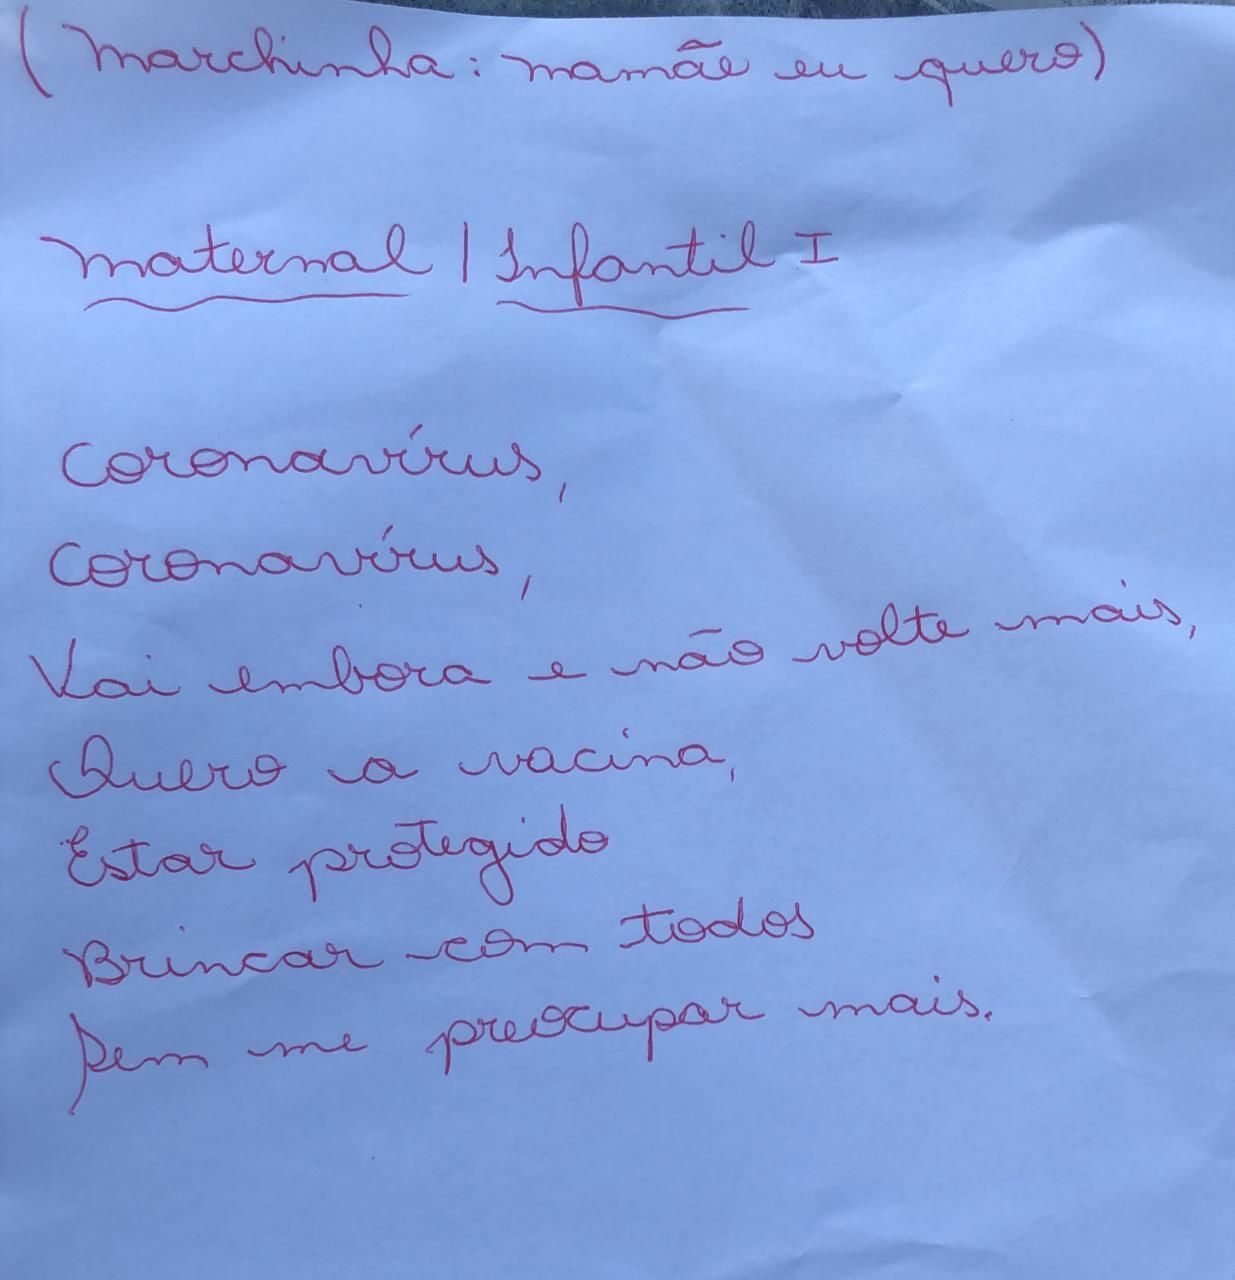 (Marchinha: mamãe eu quero)
Maternal / Infantil I
Coronavírus,
Coronavírus,
Vai embora e não volte mais,
Quero a vacina,
Estar protegido
Brincar com todos
Sem me preocupar mais.